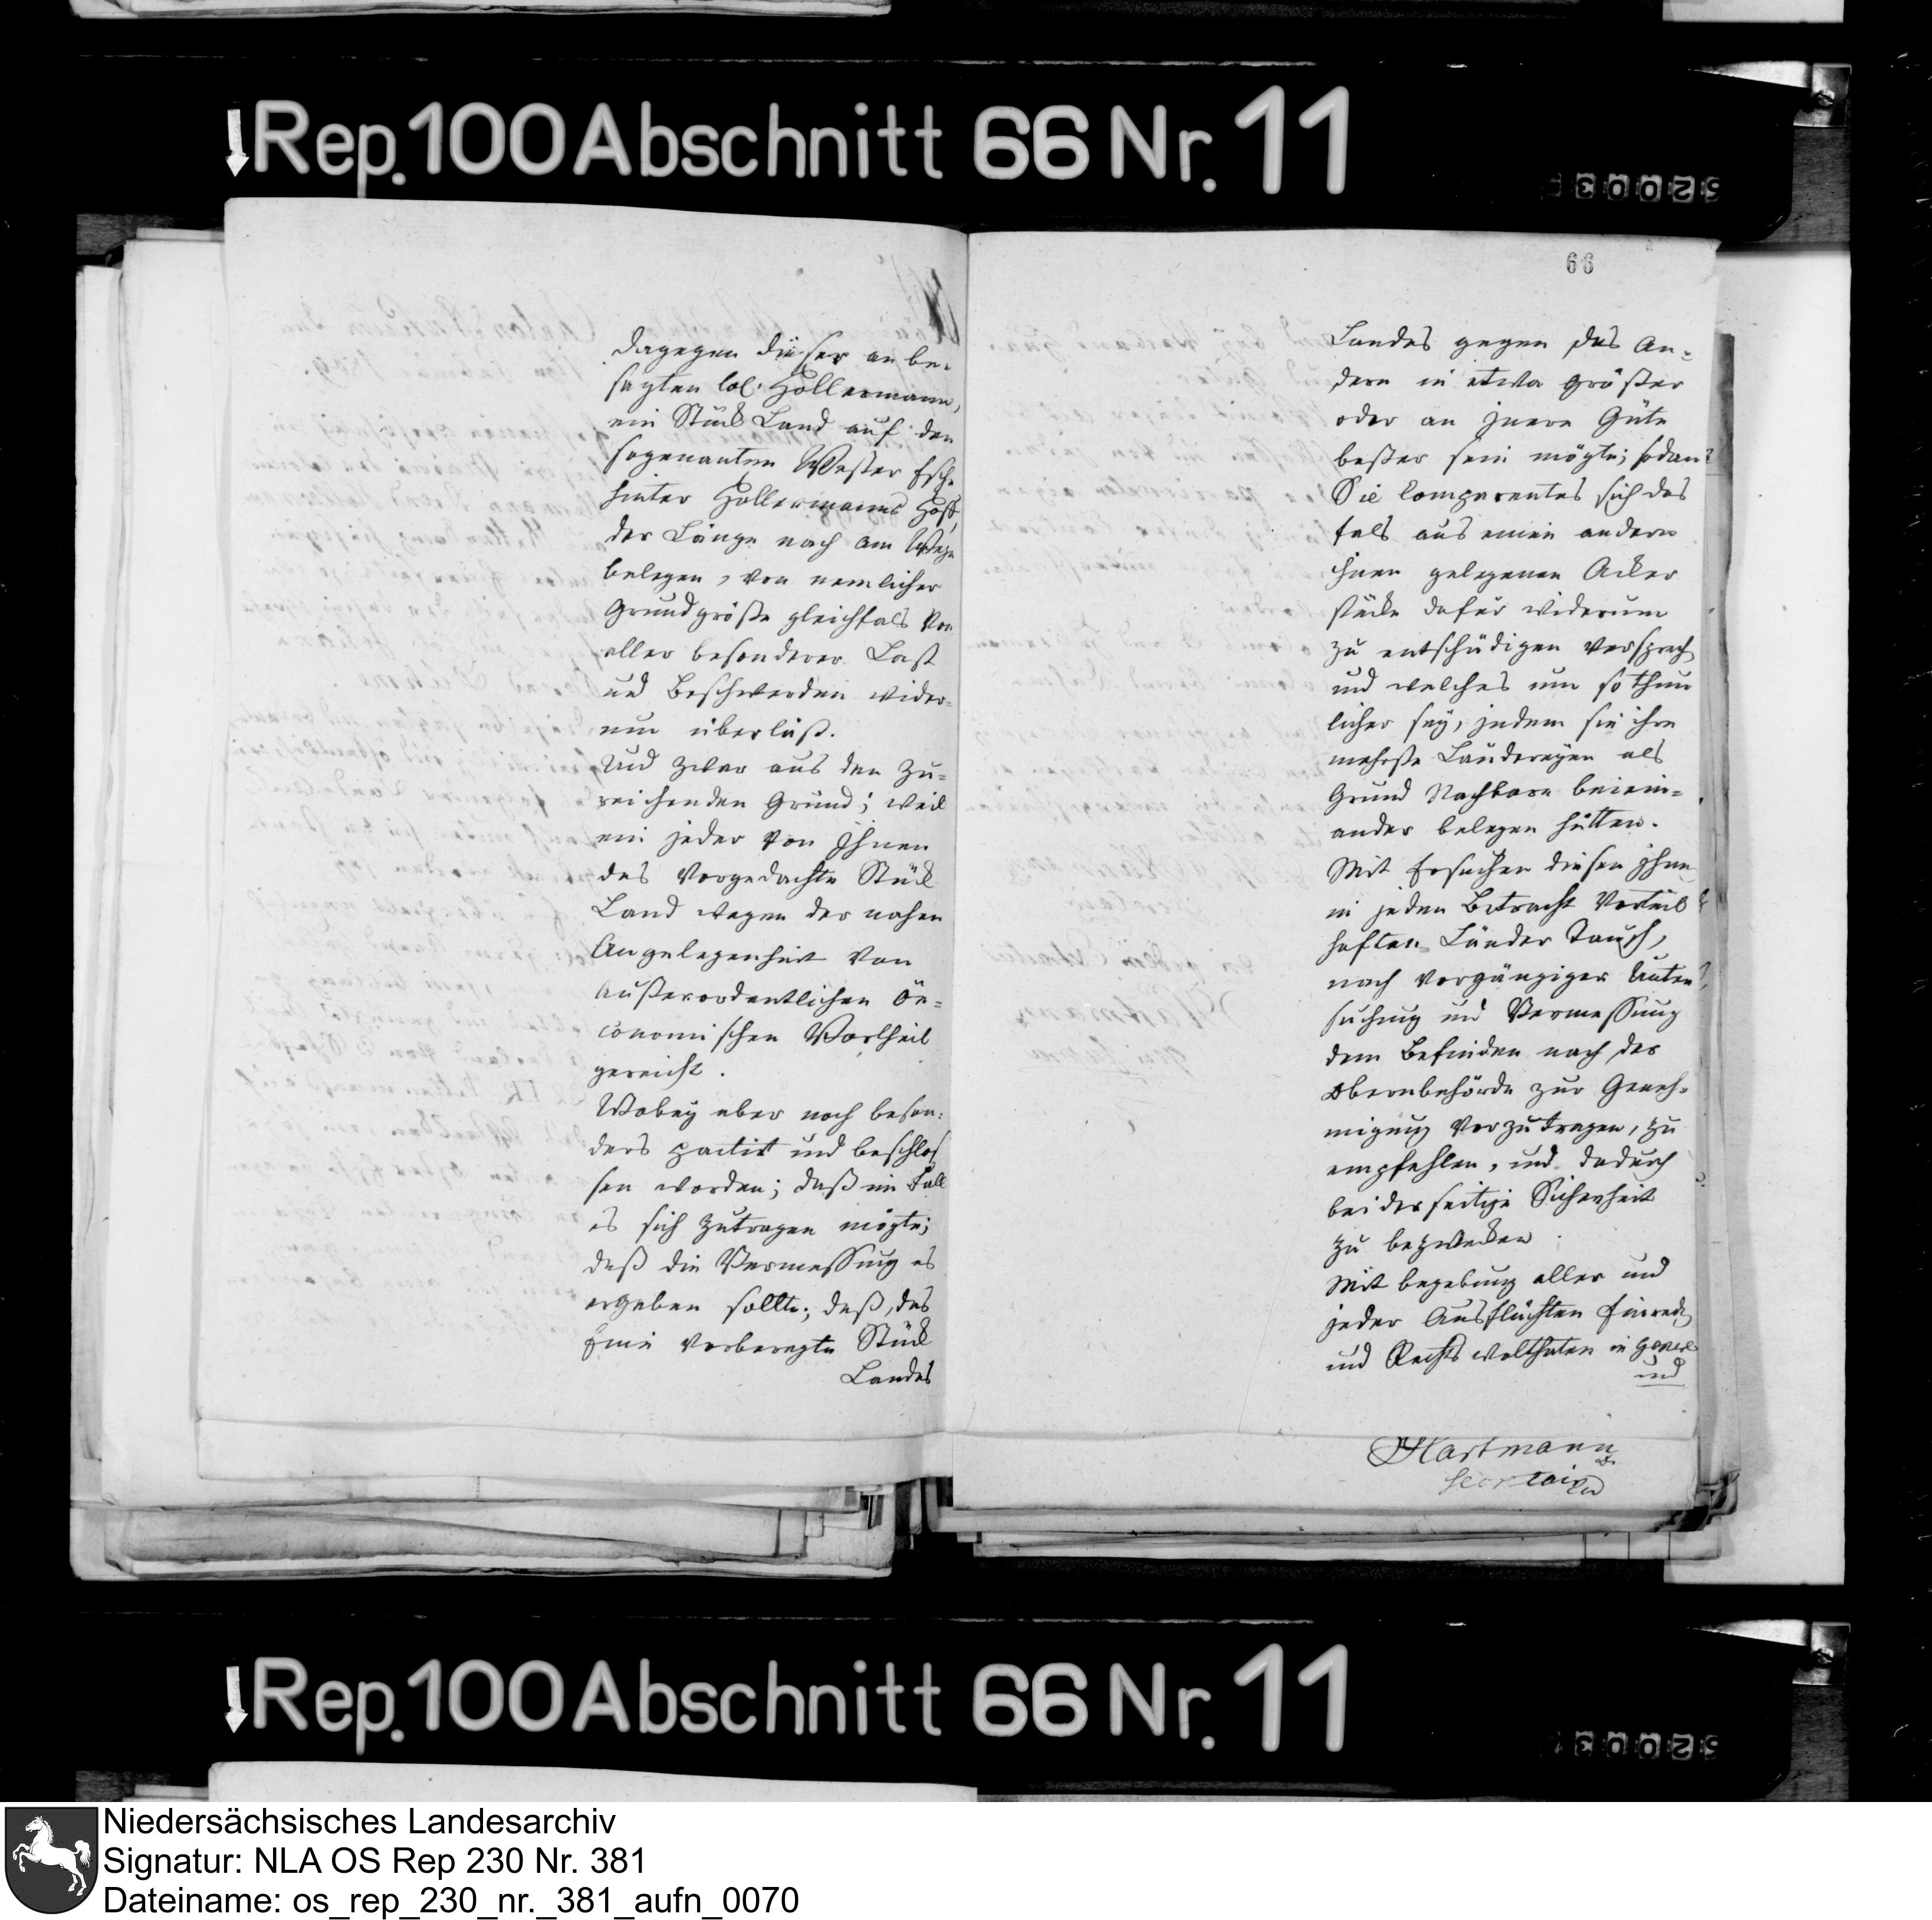 Rep. 100 Abschnitt 66 Nr. 11
dagegen dieser an be-
sagten Col: Hollermann,
ein Stück Land auf den
sogenanten Wester Esch,
hinter Hollermanns Hoff,
der Länge nach am Wege
belegen, von nemlicher
Grundgröße gleichfals von
aller besonderer Last
und Beschwerden wider-
um überläß.
Und zwar aus den zu-
reichenden Grund; weil
ein jeder von Ihnen
das vorgedachte Stück
Land wegen der nahen
Angelegenheit von
außerordentlichen öe-
conomischen Vortheil
gereicht.
Wobey aber noch beson-
ders pactirt und beschlos
sen worden; daß im Fall
es sich zutragen mögte;
daß die Vermessung es
ergeben sollte; daß, das
Eine vorberegte Stück
Landes
66
Landes gegen das An-
dere in etwa größer
oder an jnere Güte
beßer sein mögte; sodan
Sie Comparentes sich des
fals aus einen andern
ihnen gelegenen Acker
stücke dafür widerum
zu entschädigen versprech
und welches um so thun
licher sey, indem sie ihre
mehrste Ländereyen als
Grund Nachbarn beiein-
ander belegen hätten.
Mit Ersuchen diesen ihnen
in jeden Betracht Vorteil
haften Länder Tausch,
nach vorgängiger Unter
suchung und Vermessung
dem Befinden nach der
Obernbehörde zur Geneh-
migung vorzutragen, zu
empfehlen, und dadurch
beiderseitige Sicherheit
zu bezwecken.
Mit begebung aller und
jeder Ausflüchten Einrede
und Rechts wolthaten in
und
Hartmann
Secretair
Rep. 100 Abschnitt 66 Nr. 11
Niedersächsisches Landesarchiv
Signatur: NLA OS Rep 230 Nr. 381
Dateiname: os_rep_230_nr._381_aufn_0070